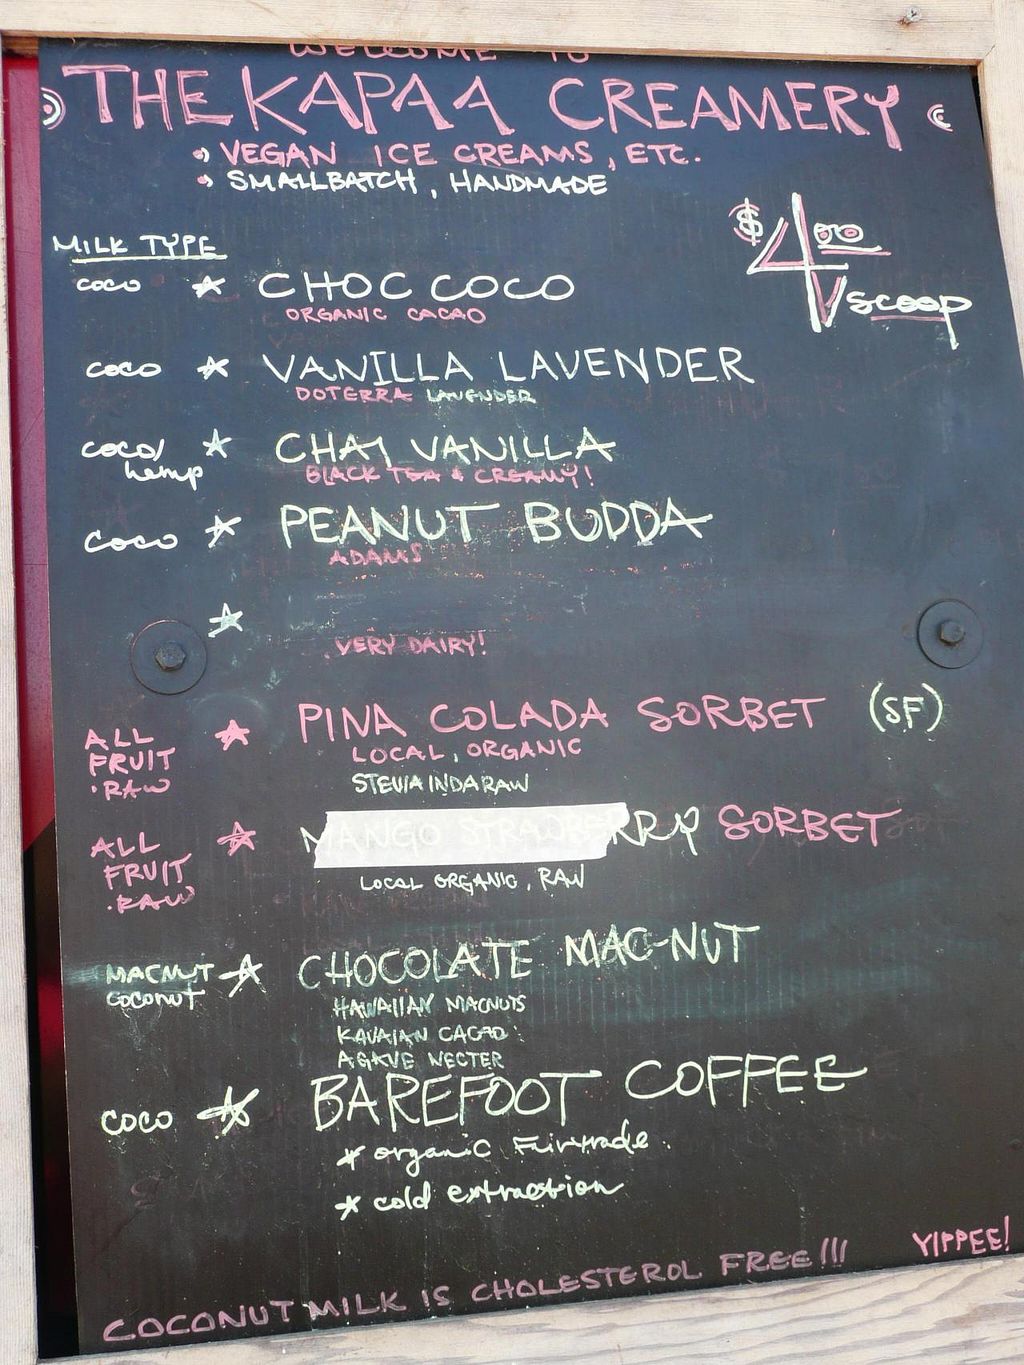 WELCOME TO
THE KAPAA CREAMERY
VEGAN ICE CREAMS, ETC.
SMALLBATCH, HANDMADE
$4.00
scoop
MILK TYPE
coco ☆ CHOC COCO
ORGANIC CACAO
coco ☆ VANILLA LAVENDER
DOTERRA LAVENDER
coco/ ☆ CHAI VANILLA
hemp
BLACK TEA & CREAMY!
coco ☆ PEANUT BUDDA
ADAMS
☆
VERY DAIRY!
ALL FRUIT .RAW ☆ PINA COLADA SORBET (SF)
LOCAL, ORGANIC
STEVIA INDARAW
ALL FRUIT .RAW ☆ MANGO STRAWBERRY SORBET
LOCAL ORGANIC, RAW
MACNUT COCONUT ☆ CHOCOLATE MAC-NUT
HAWAIIAN MACNUTS
KAUAIAN CACAO
AGAVE NECTER
coco ☆ BAREFOOT COFFEE
* organic Fairtrade
* cold extraction
YIPPEE!
COCONUT MILK IS CHOLESTEROL FREE!!!